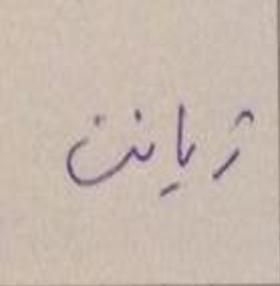 ژیانت